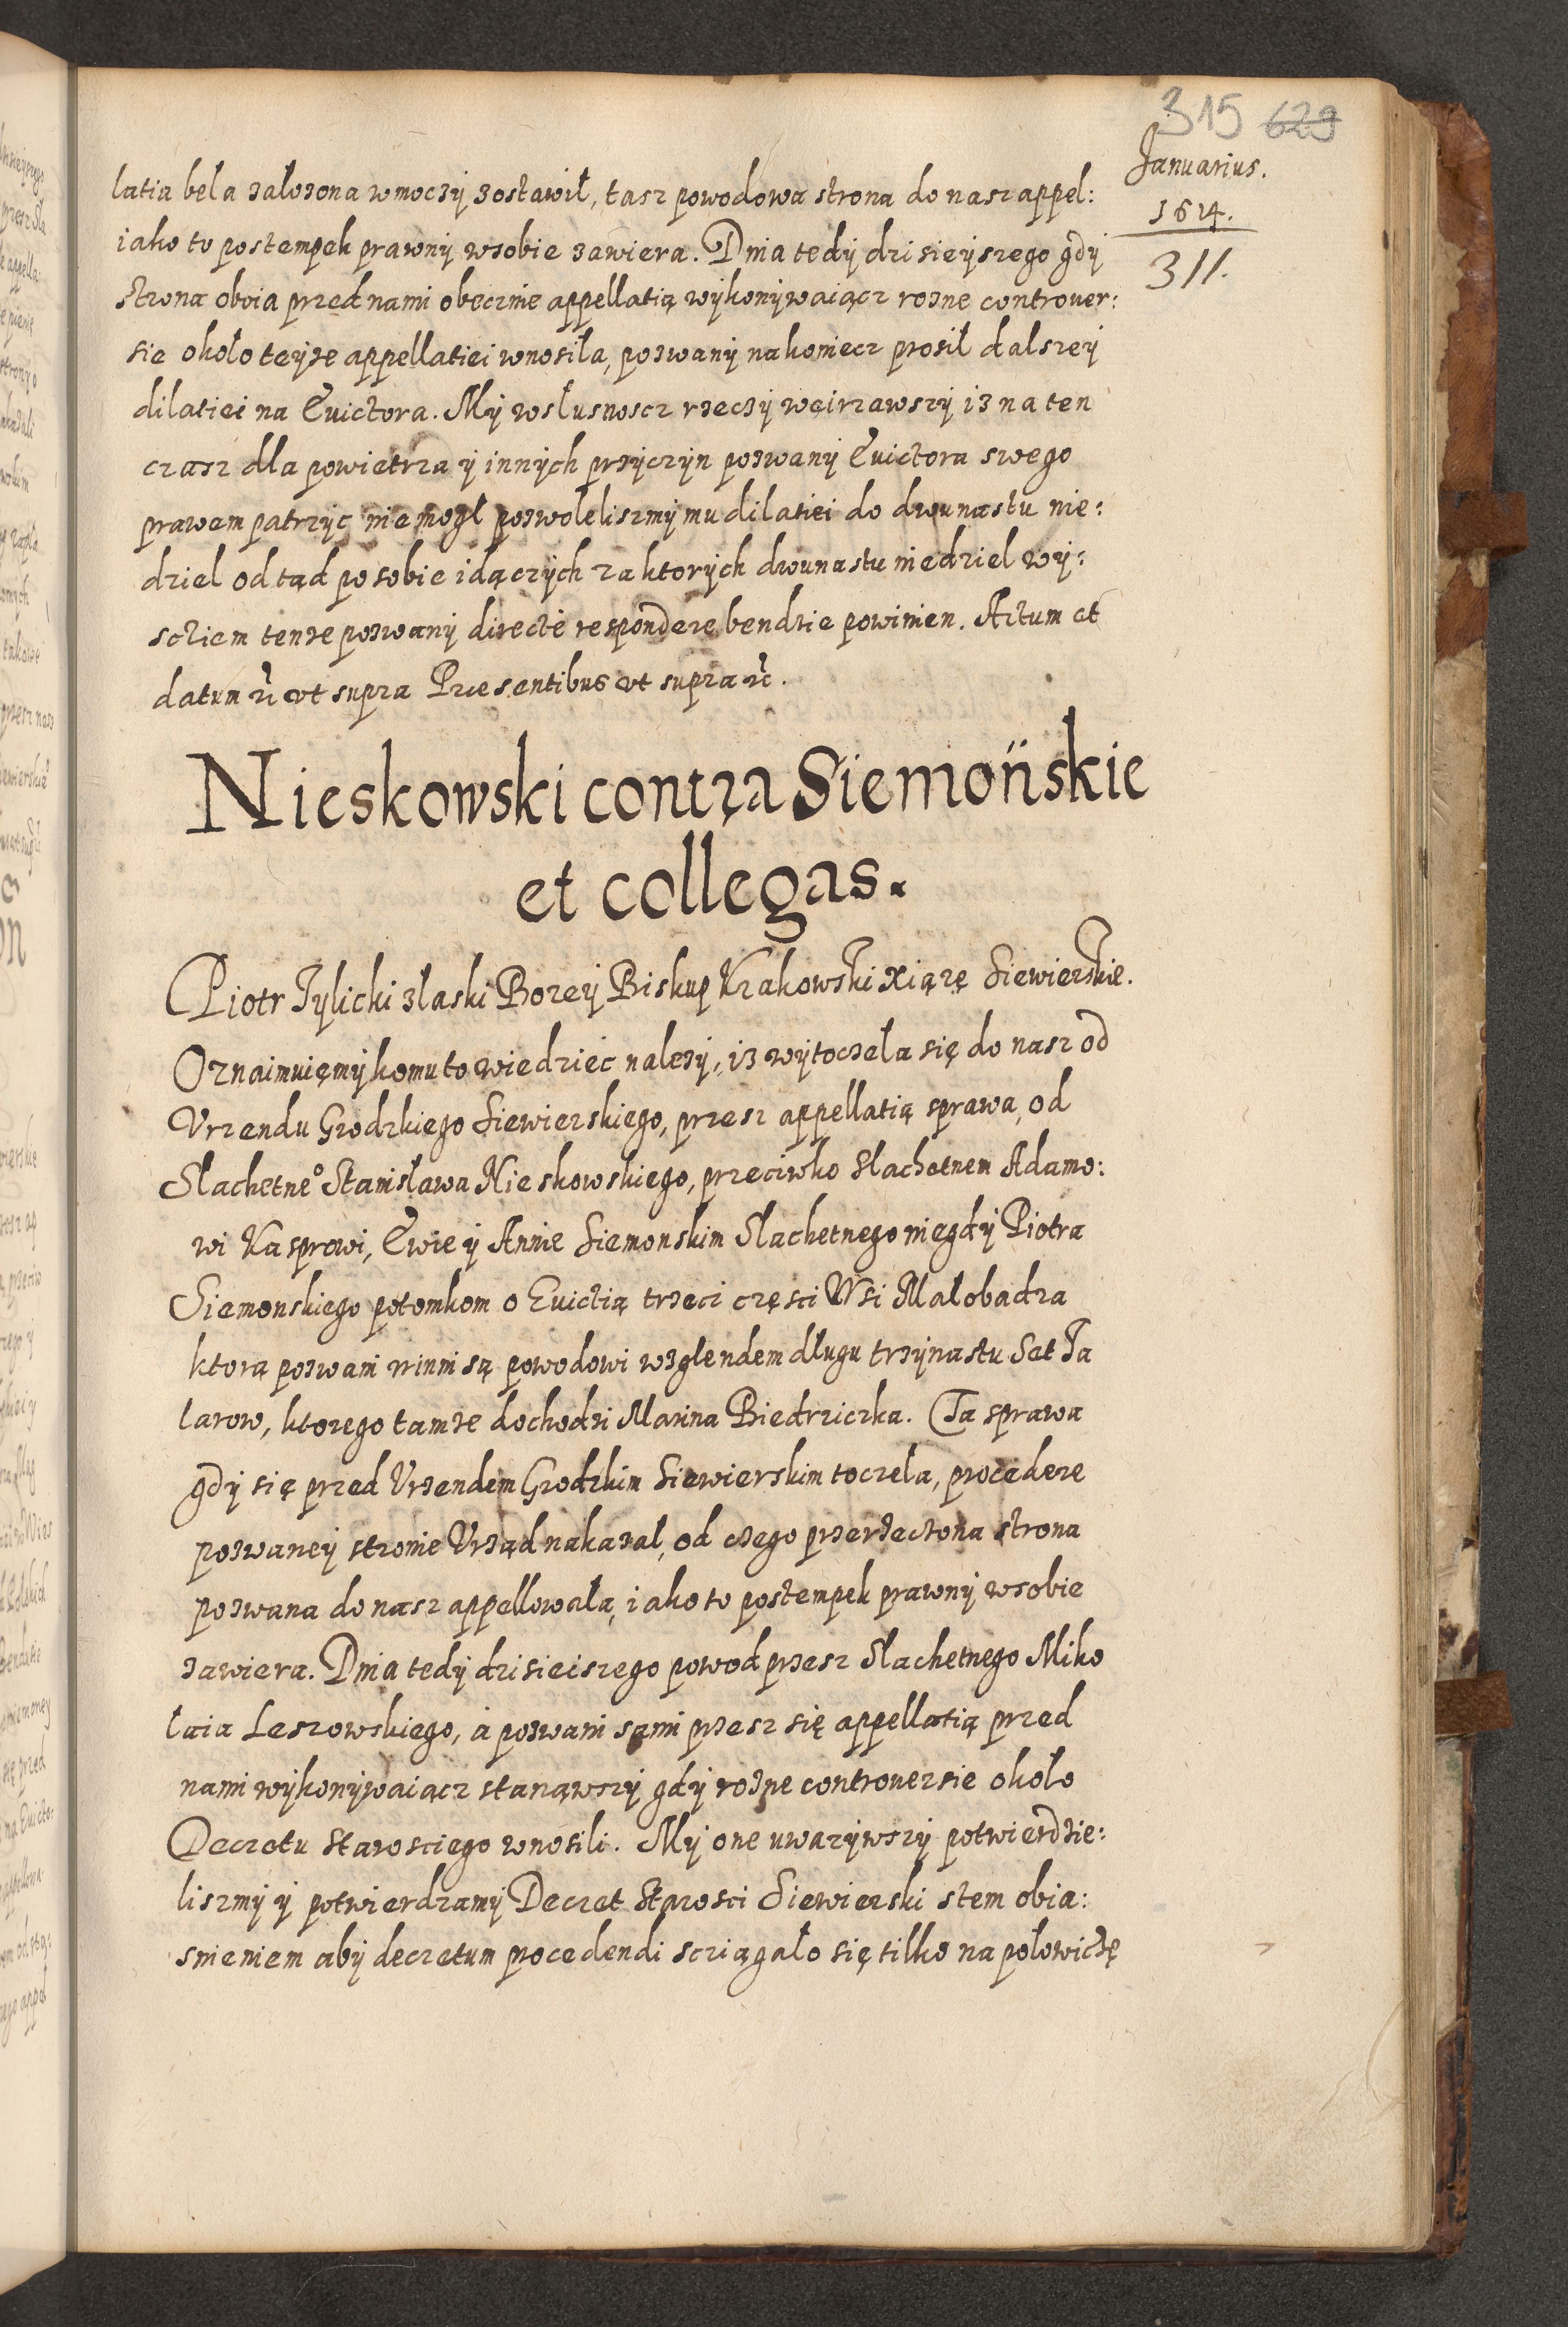 315 629
Januarius.
1614.
311.
latia bela zalozona w moczÿ zostawił, tasz powodowa strona do nasz appel:
iako to postempek prawnÿ wsobie zawiera. Dnia tedÿ dzisieÿszego gdÿ
strona oboia przed nami obecznie appellatią wÿkonÿwaiącz rozne controuer:
sie około teÿze appellatiei wnosiła, pozwanÿ nakoniecz prosił dalszeÿ
dilatiei na Euictora. Mÿ wsłusnoscz rzeczÿ weirzawszÿ iz na ten
czasz dla powietrza ÿ innÿch przÿczÿn pozwanÿ Euictora swego
prawem patrzÿc nie mogł pozwoleliszmÿ mu dilatiei do dwunastu nie:
dziel od tąd po sobie idączÿch za ktorÿch dwunastu niedziel wÿ:
sctiem tenze pozwanÿ directe respondere bendzie powinien. Actum et
datum rc̃ vt supra Præsentibus vt supra rc̃.
Nieskowski contra Siemońskïe
et collegas.
Piotr Tÿlicki zlaski Bozeÿ Biskup Krakowski Xiązę Siewierskie.
Oznaimuięmÿ komu to wiedziec nalezÿ, iz wÿtoczela się do nasz od
Vrzendu Grodzkiego Siewierskiego, przesz appellatią sprawa, od
Slachetne° Stanisława Nieskowskiego, przeciwko Slachetnem Adamo:
wi Kasprowi, Ewie ÿ Annie Siemonskim Slachetnego niegdÿ Piotra
Siemonskiego potomkom o Euictią trzeci częsci Wsi Małobadza
ktorą pozwani winni są powodowi wzglendem długu trzÿnastu Set Ta
larow, ktorego tamze dochodzi Marina Biedrziczka. Ta sprawa
gdÿ się przed Vrzendem Grodzkim Siewierskim toczela, procedere
pozwaneÿ stronie Vrząd nakazał, od czego przerzeczona strona
pozwana do nasz appellowała, iako to postempek prawnÿ wsobie
zawiera. Dnia tedÿ dzisieiszego powod przesz Slachetnego Miko
łaia Leszowskiego, á pozwani sami przesz się appellatią przed
nami wÿkonÿwaiącz stanąwszÿ gdÿ rozne controuersie około
Decretu Starosciego wnosili. Mÿ one uwazÿwszÿ potwierdzie:
liszmÿ ÿ potwierdzamÿ Decret Starosci Siewierski stem obia:
snieniem abÿ decretum procedendi scziągało się tilko na połowiczę